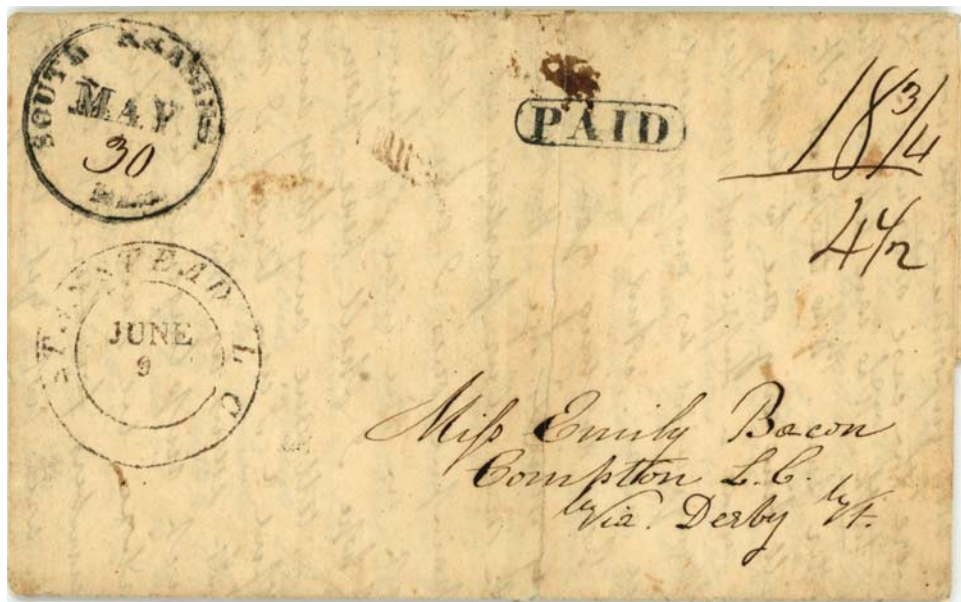 SOUTH
MAY
30
PAID
18 3/4
4 1/2
STANSTEAD L C
JUNE
9
Miſs Emily Bacon
Compton L.C.
Via Derby Vt.